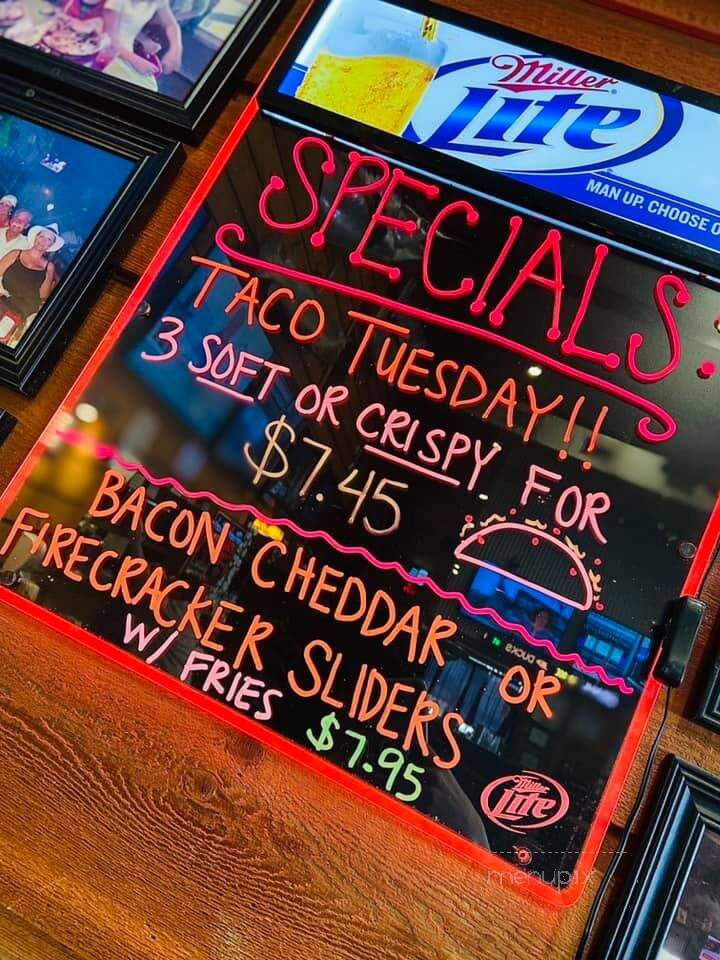 Miller
Lite
MAN UP. CHOOSE
SPECIALS.
TACO TUESDAY!!
3 SOFT OR CRISPY FOR
$7.45
BACON CHEDDAR OR
FIRECRACKER SLIDERS
W/ FRIES $7.95
Miller
Lite
menupix